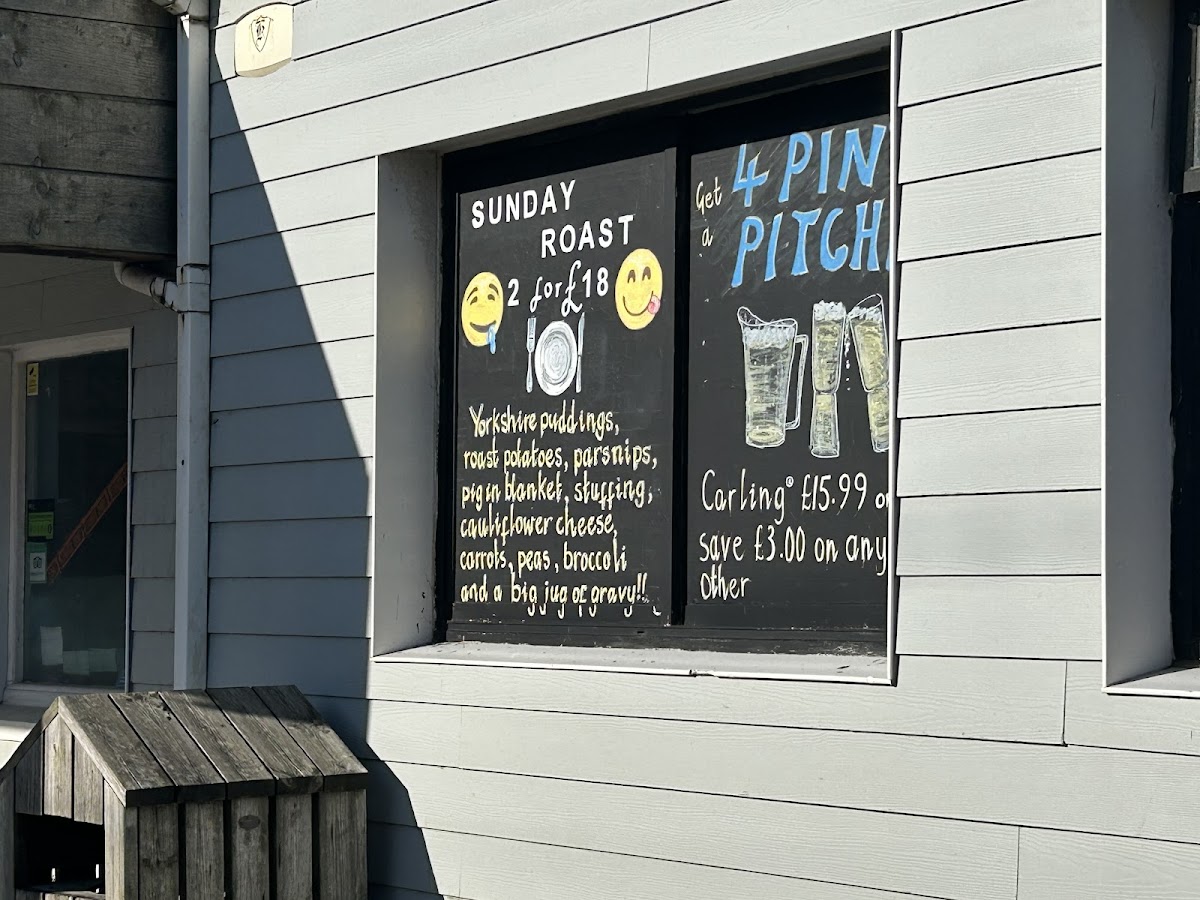 SUNDAY
ROAST
2 for £18
Yorkshire puddings,
roast potatoes, parsnips,
pig in blanket, stuffing,
cauliflower cheese,
carrots, peas, broccoli
and a big jug of gravy!!
Get 4 PIN
a PITCH
Carling® £15.99 o
save £3.00 on any
other